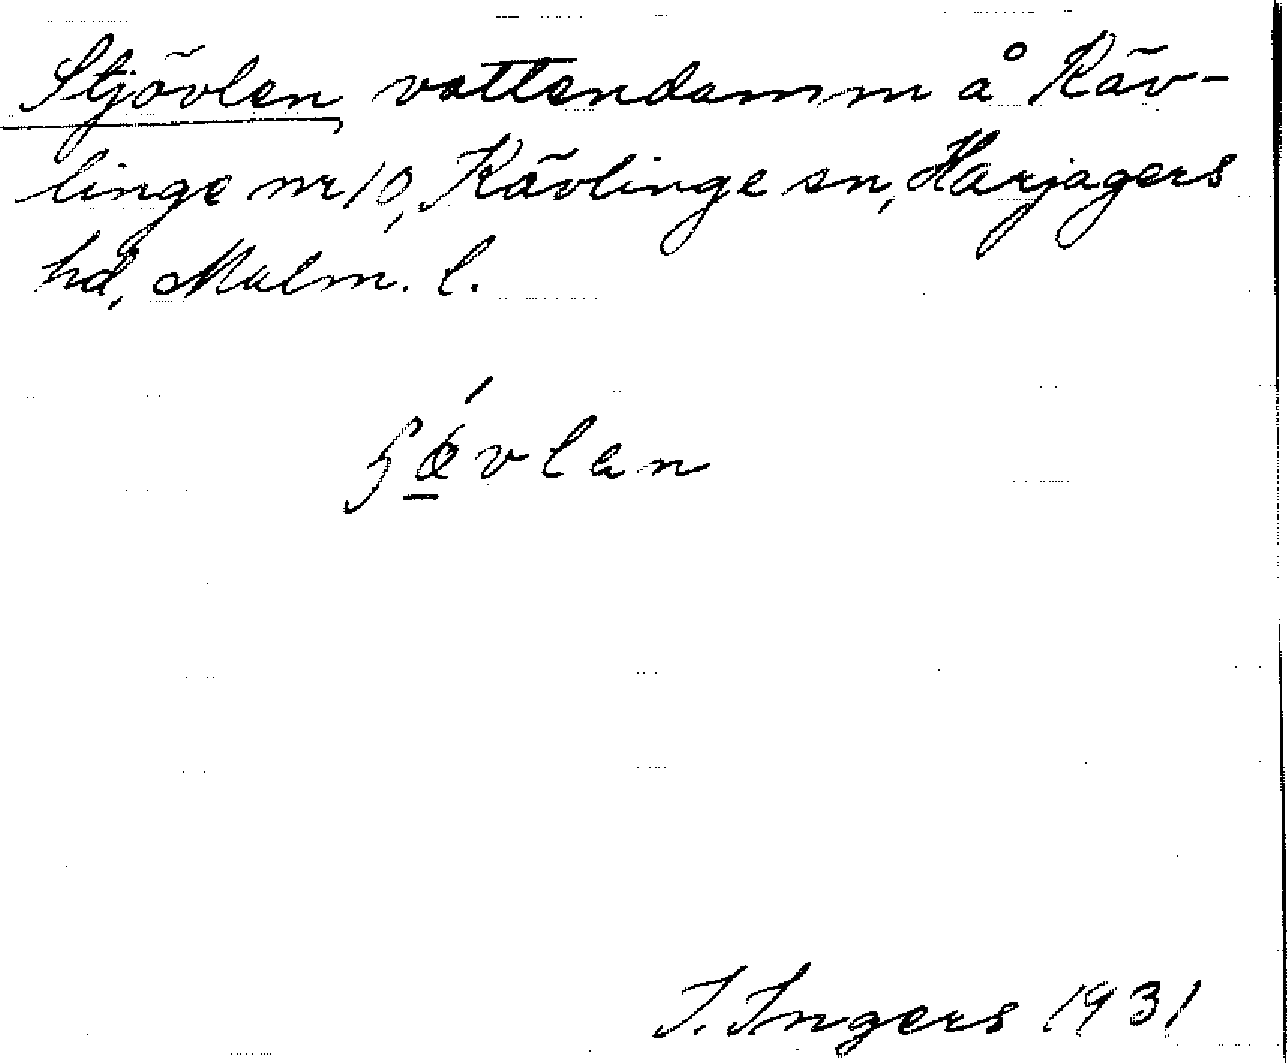 Stjövlen, vattendamm å Käv-
linge nr 10, Kävlinge sn, Harjagers
hd, Malm. l.
ʃǿvlen
I. Ingers 1931